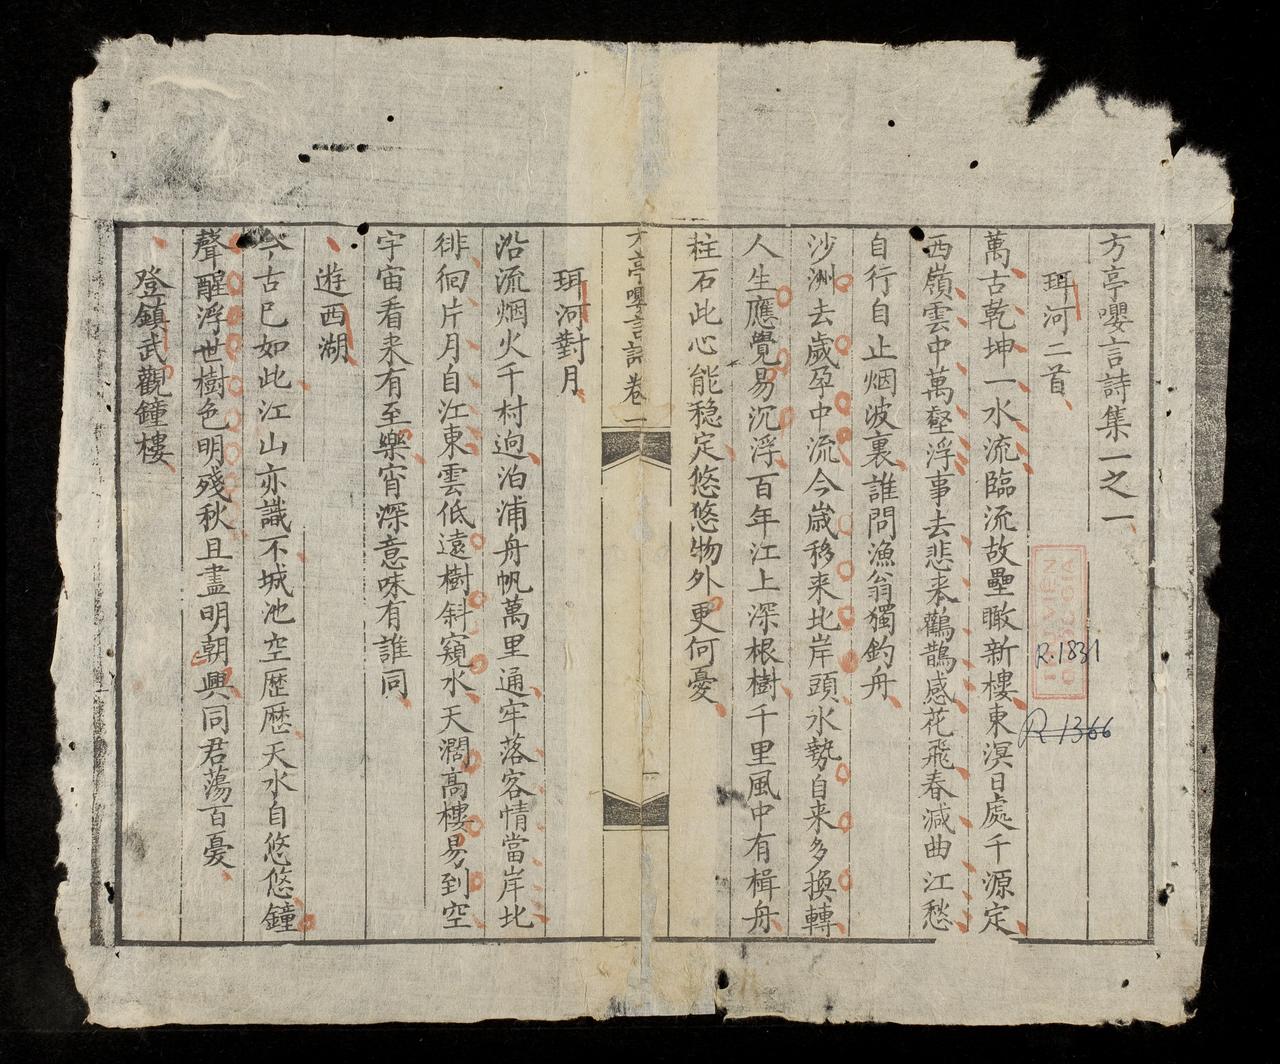 方亭嚶言詩集一之一
珥河二首
萬古乾坤一水流臨流故壘瞰新樓東溟日處千源定
西嶺雲中萬壑浮事去悲来鸛鵲感花飛春減曲江愁
自行自止烟波裏誰問漁翁獨釣舟
沙洲去歲孕中流今歲移来北岸頭水勢自来多換轉
人生應覺易沉浮百年江上深根樹千里風中有楫舟
柱石此心能稳定悠悠物外更何憂
方亭嚶言詩卷一
一
珥河對月
沿流烟火千村迥泊浦舟帆萬里通牢落客情當岸北
徘徊片月自江東雲低遠樹斜窺水天濶高樓易到空
宇宙看来有至樂宵深意味有誰同
遊西湖
今古已如此江山亦識不城池空歴歴天水自悠悠鐘
聲醒浮世樹色明殘秋且盡明朝興同君蕩百憂
登鎮武觀鐘樓
R.1831
R 1366